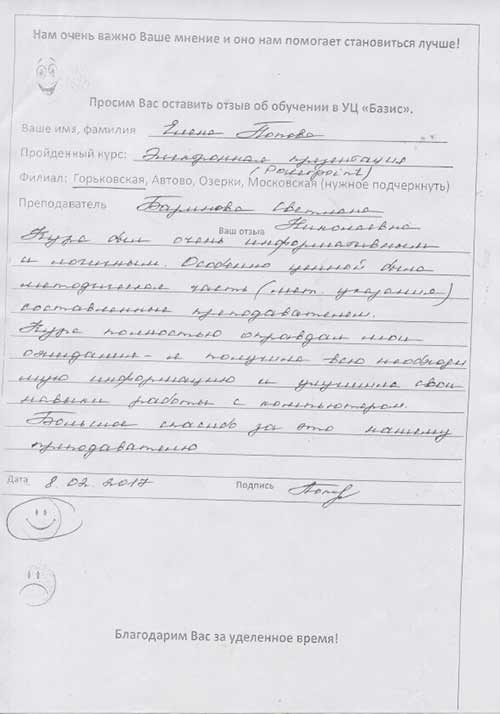 Нам очень важно Ваше мнение и оно нам помогает становиться лучше!
Просим Вас оставить отзыв об обучении в УЦ «Базис».
Ваше имя, фамилия Елена Попова
Пройденный курс: Электронная презентация
(Powerpoint)
Филиал: Горьковская, Автово, Озерки, Московская (нужное подчеркнуть)
Преподаватель Баринова Светлана
Ваш отзыв Николаевна
Курс был очень информативным
и логичным. Особенно ценной была
методическая часть (мет. указания)
составленные преподавателем.
Курс полностью оправдал мои
ожидания - я получила всю необходи
мую информацию и улучшила свои
навыки работы с компьютером.
Большое спасибо за это нашему
преподавателю
Дата 8.02.2017 Подпись
Благодарим Вас за уделенное время!